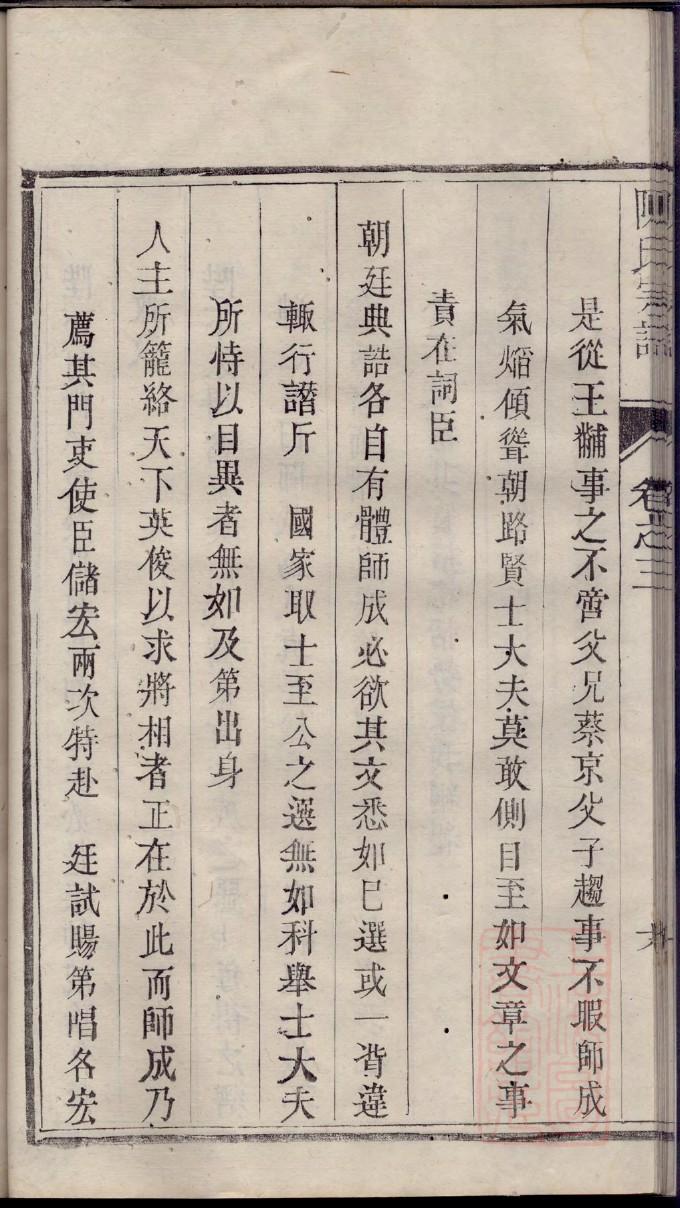 陳氏宗譜 卷之三
是從王黼事之不啻父兄蔡京父子趨事不暇師成
氣焰傾聳朝路賢士大夫莫敢側目至如文章之事
責在詞臣
朝廷典誥各自有體師成必欲其文悉如已選或一背違
輙行譖斥 國家取士至公之選無如科舉士大夫
所恃以目異者無如及第出身
人主所籠絡天下英俊以求將相者正在於此而師成乃
薦其門吏使臣儲宏兩次特赴 廷試賜第唱名宏